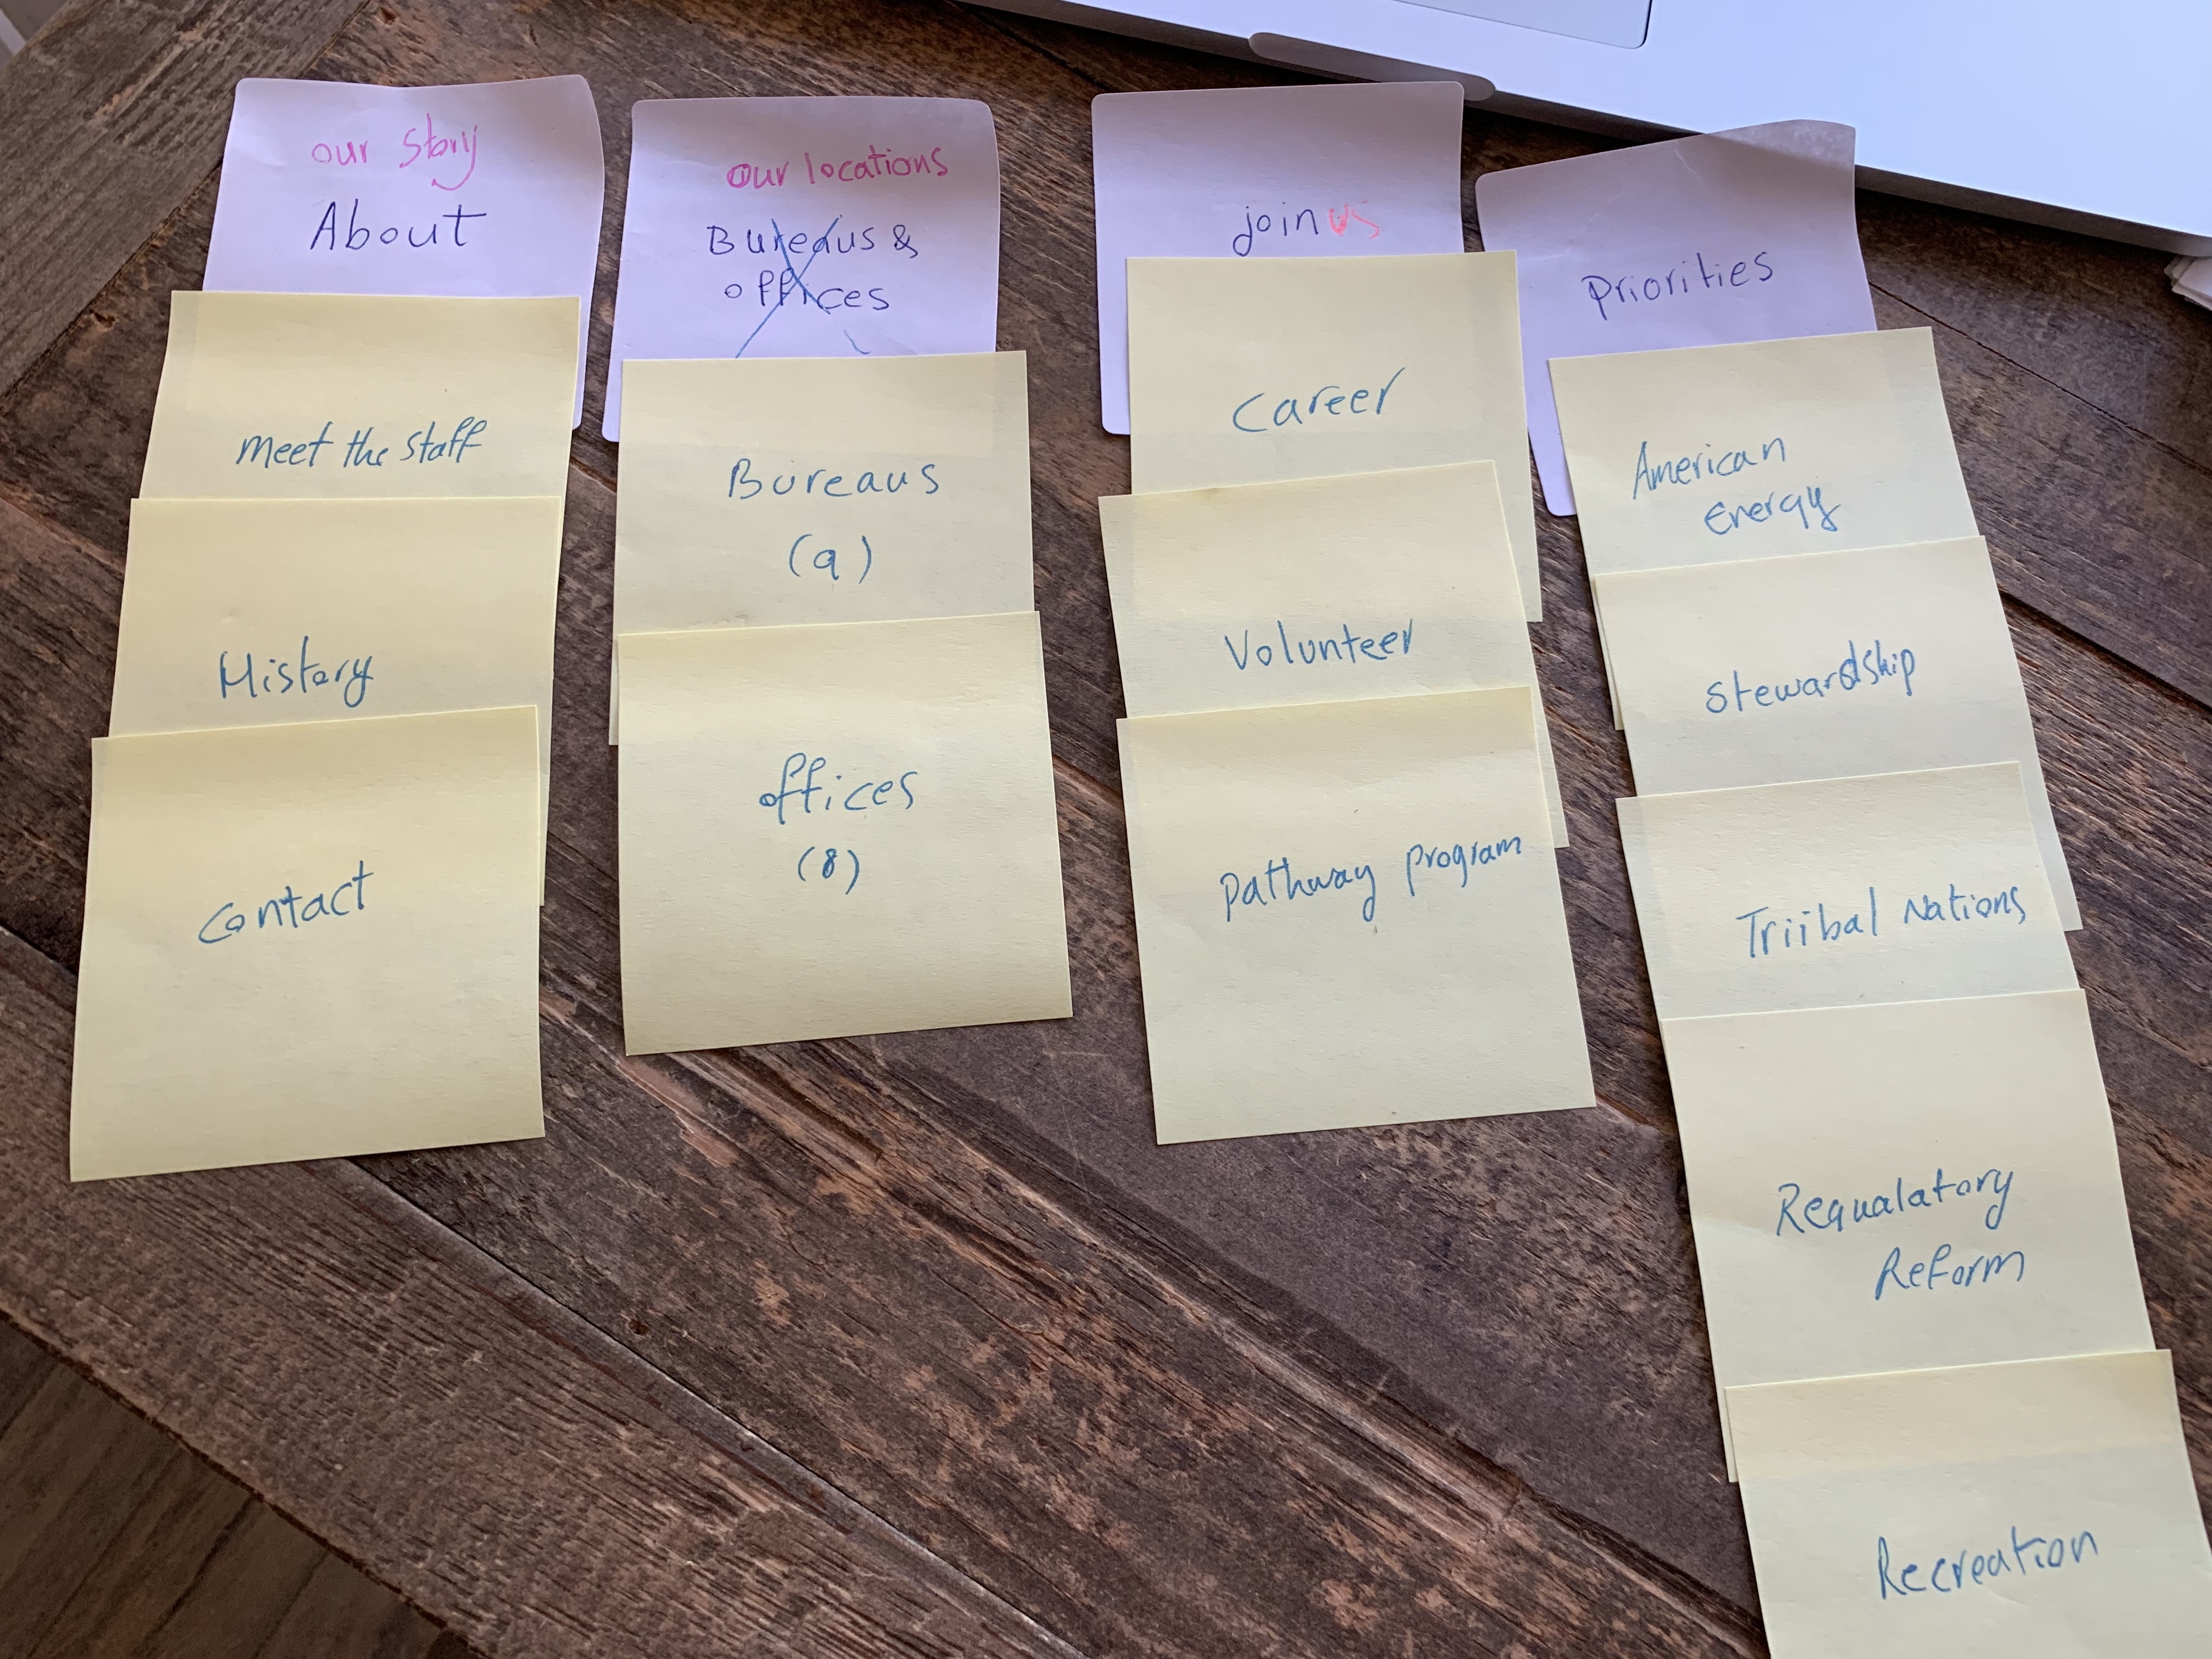 our story
About
meet the staff
History
Contact
our locations
Bureaus &
offices
Bureaus
(9)
offices
(8)
join us
Career
Volunteer
Pathway program
Priorities
American
Energy
Stewardship
Triibal Nations
Regualatory
Reform
Recreation